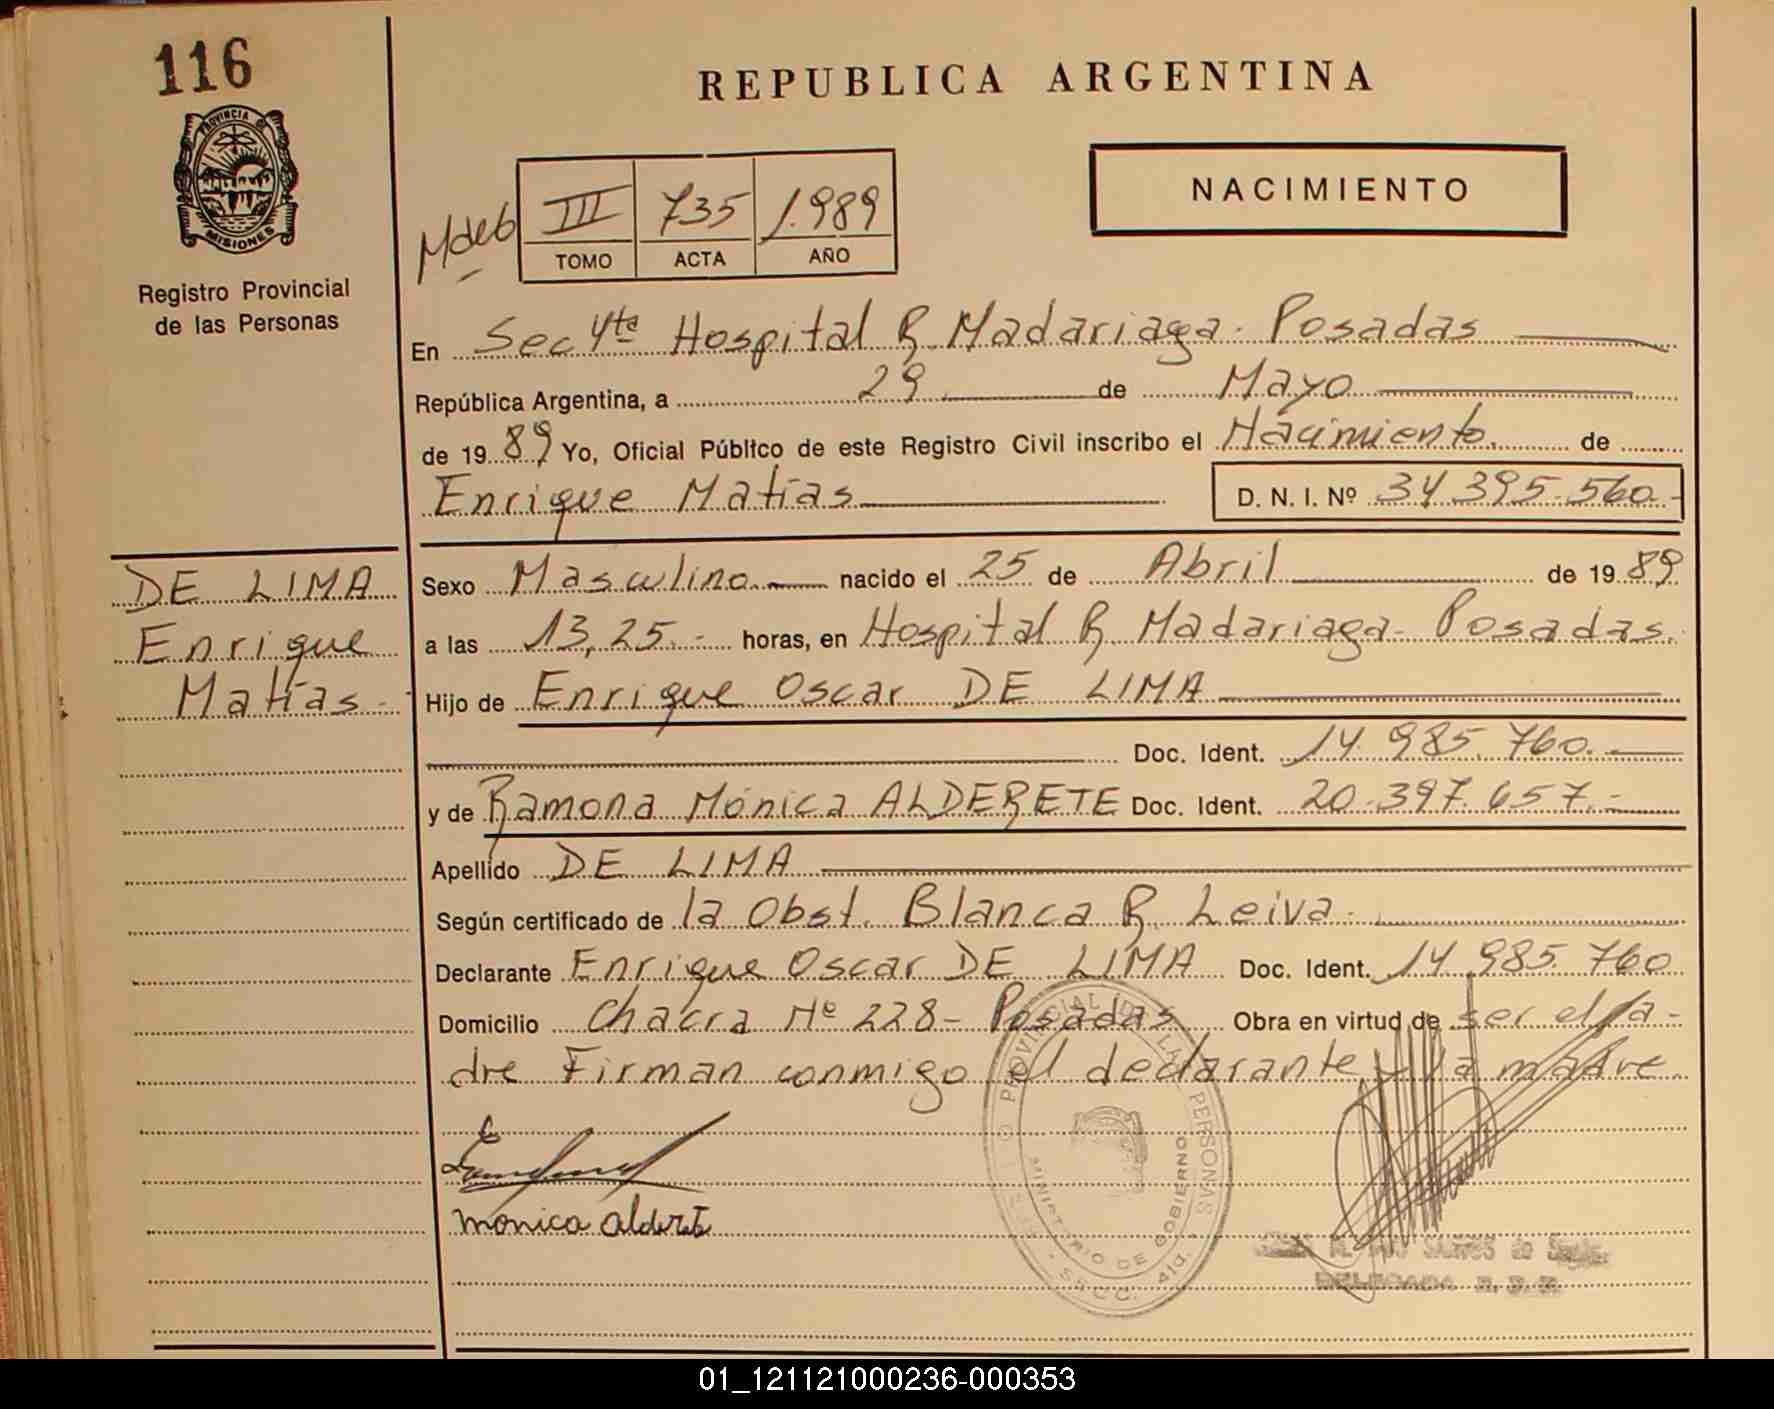 116
PROVINCIA DE
MISIONES
Registro Provincial
de las Personas
REPUBLICA ARGENTINA
NACIMIENTO
III 735 1.989
TOMO ACTA AÑO
En Sec 4ta Hospital R Madariaga. Posadas
República Argentina, a 29 de Mayo
de 19 89 Yo, Oficial Público de este Registro Civil inscribo el Nacimiento. de
Enrique Matías D. N. I. Nº 34.395.560.-
DE LIMA
Enrique
Matías.-
Sexo Masculino nacido el 25 de Abril de 19 89
a las 13,25.- horas, en Hospital R Madariaga- Posadas.
Hijo de Enrique Oscar DE LIMA
Doc. Ident. 14.985.760.
y de Ramona Mónica ALDERETE Doc. Ident. 20.397.657.-
Apellido DE LIMA
Según certificado de la Obst. Blanca R. Leiva.
Declarante Enrique Oscar DE LIMA Doc. Ident. 14.985.760
Domicilio Chacra Nº 228- Posadas Obra en virtud de ser el pa-
dre Firman conmigo el declarante y la madre
monica alderete
PROVINCIAL DE LAS PERSONAS
MINISTERIO DE GOBIERNO
SECC. 4ta.
SANTOS de
DELEGADA R. P. P.
01_121121000236-000353